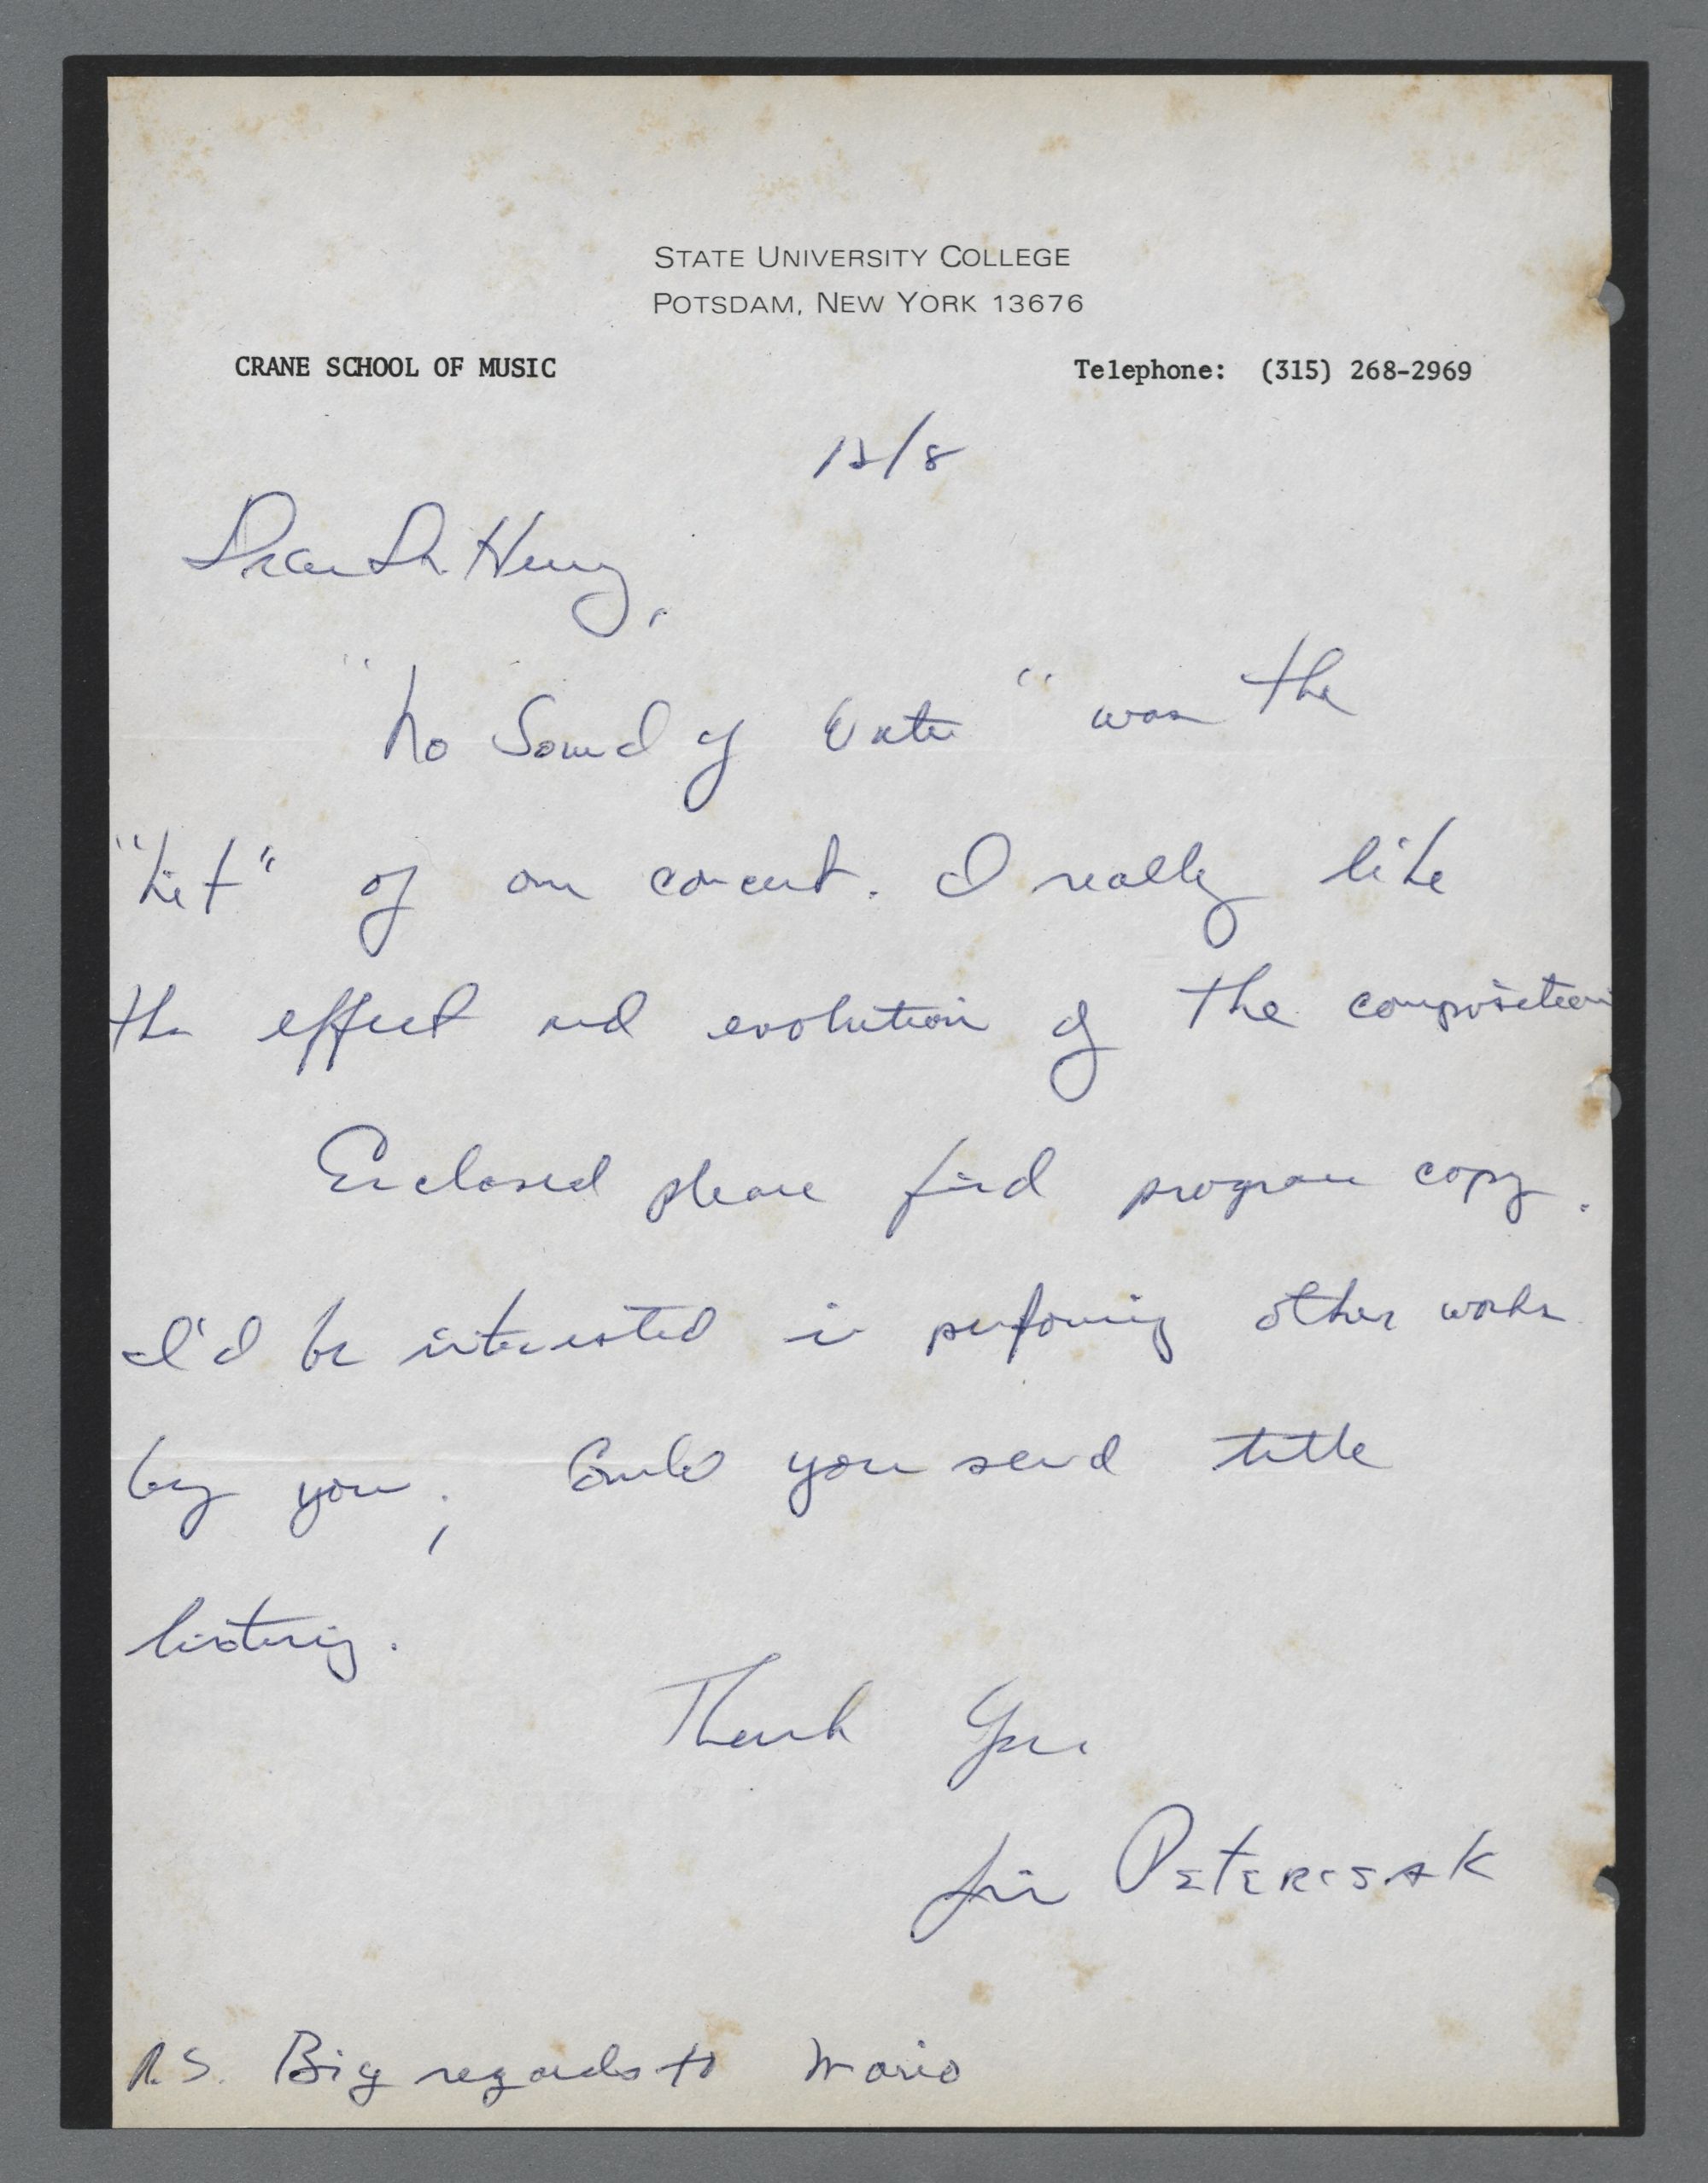 STATE UNIVERSITY COLLEGE
POTSDAM, NEW YORK 13676
CRANE SCHOOL OF MUSIC
Telephone: (315) 268-2969
12/8
Dear Dr. Henry,
"No Sound of Water" was the
"hit" of our concert. I really like
the effect and evolution of the composition
Enclosed please find program copy.
I'd be interested in performing other works
by you; Could you send title
listening.
Thank You
Jim PETERCSAK
P.S. Big regards to Mario